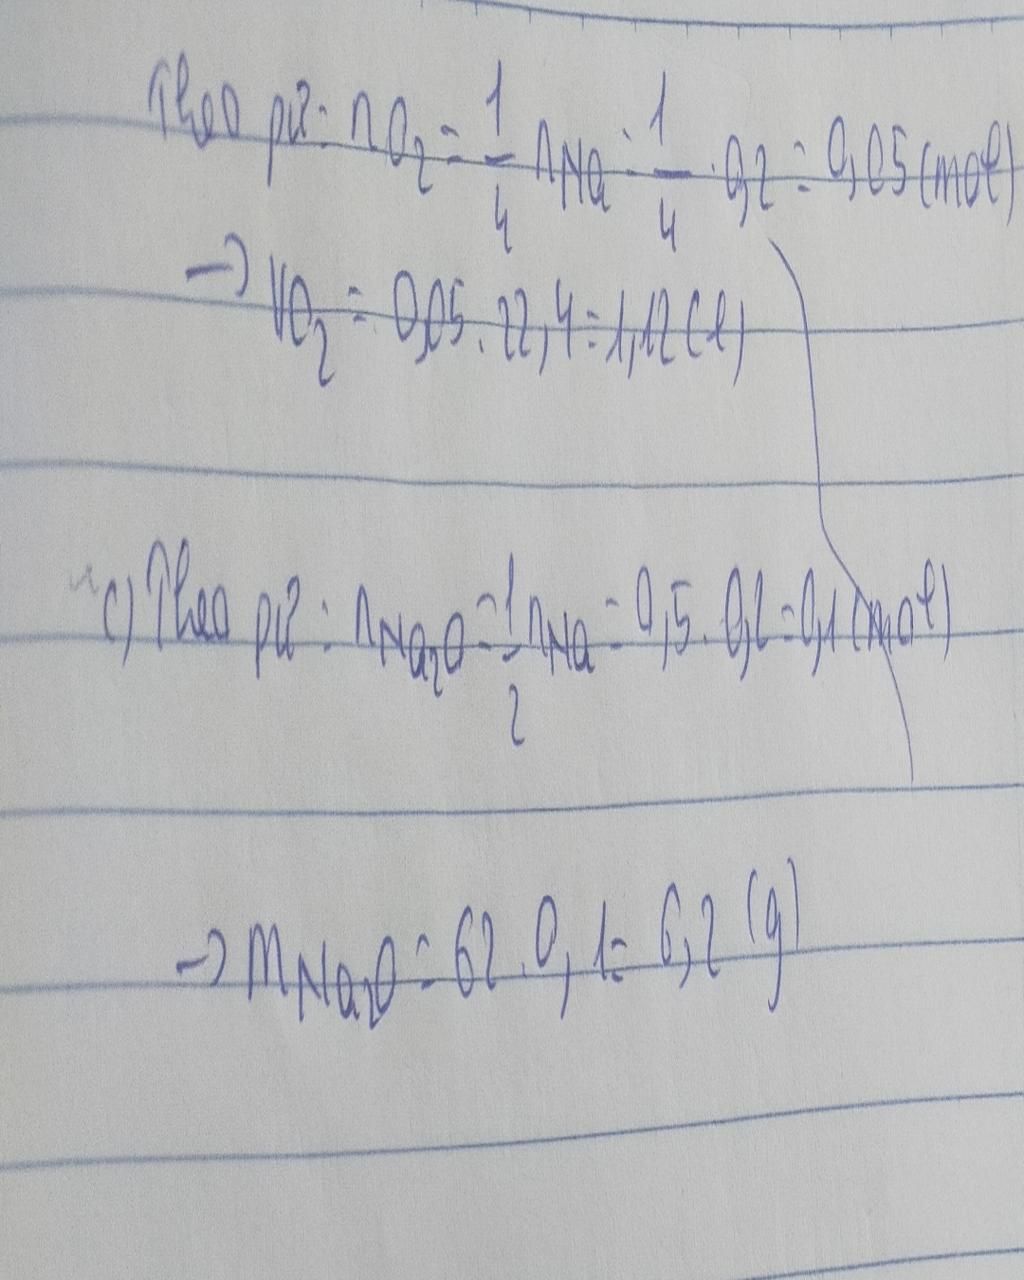 Theo pt: nO₂ = 1/4 nNa = 1/4 . 0,2 = 0,05 (mol)
→ VO₂ = 0,05 . 22,4 = 1,12 (l)
c) Theo pt: nNa₂O = 1/2 nNa = 0,5 . 0,2 = 0,1 (mol)
→ mNa₂O = 62 . 0,1 = 6,2 (g)